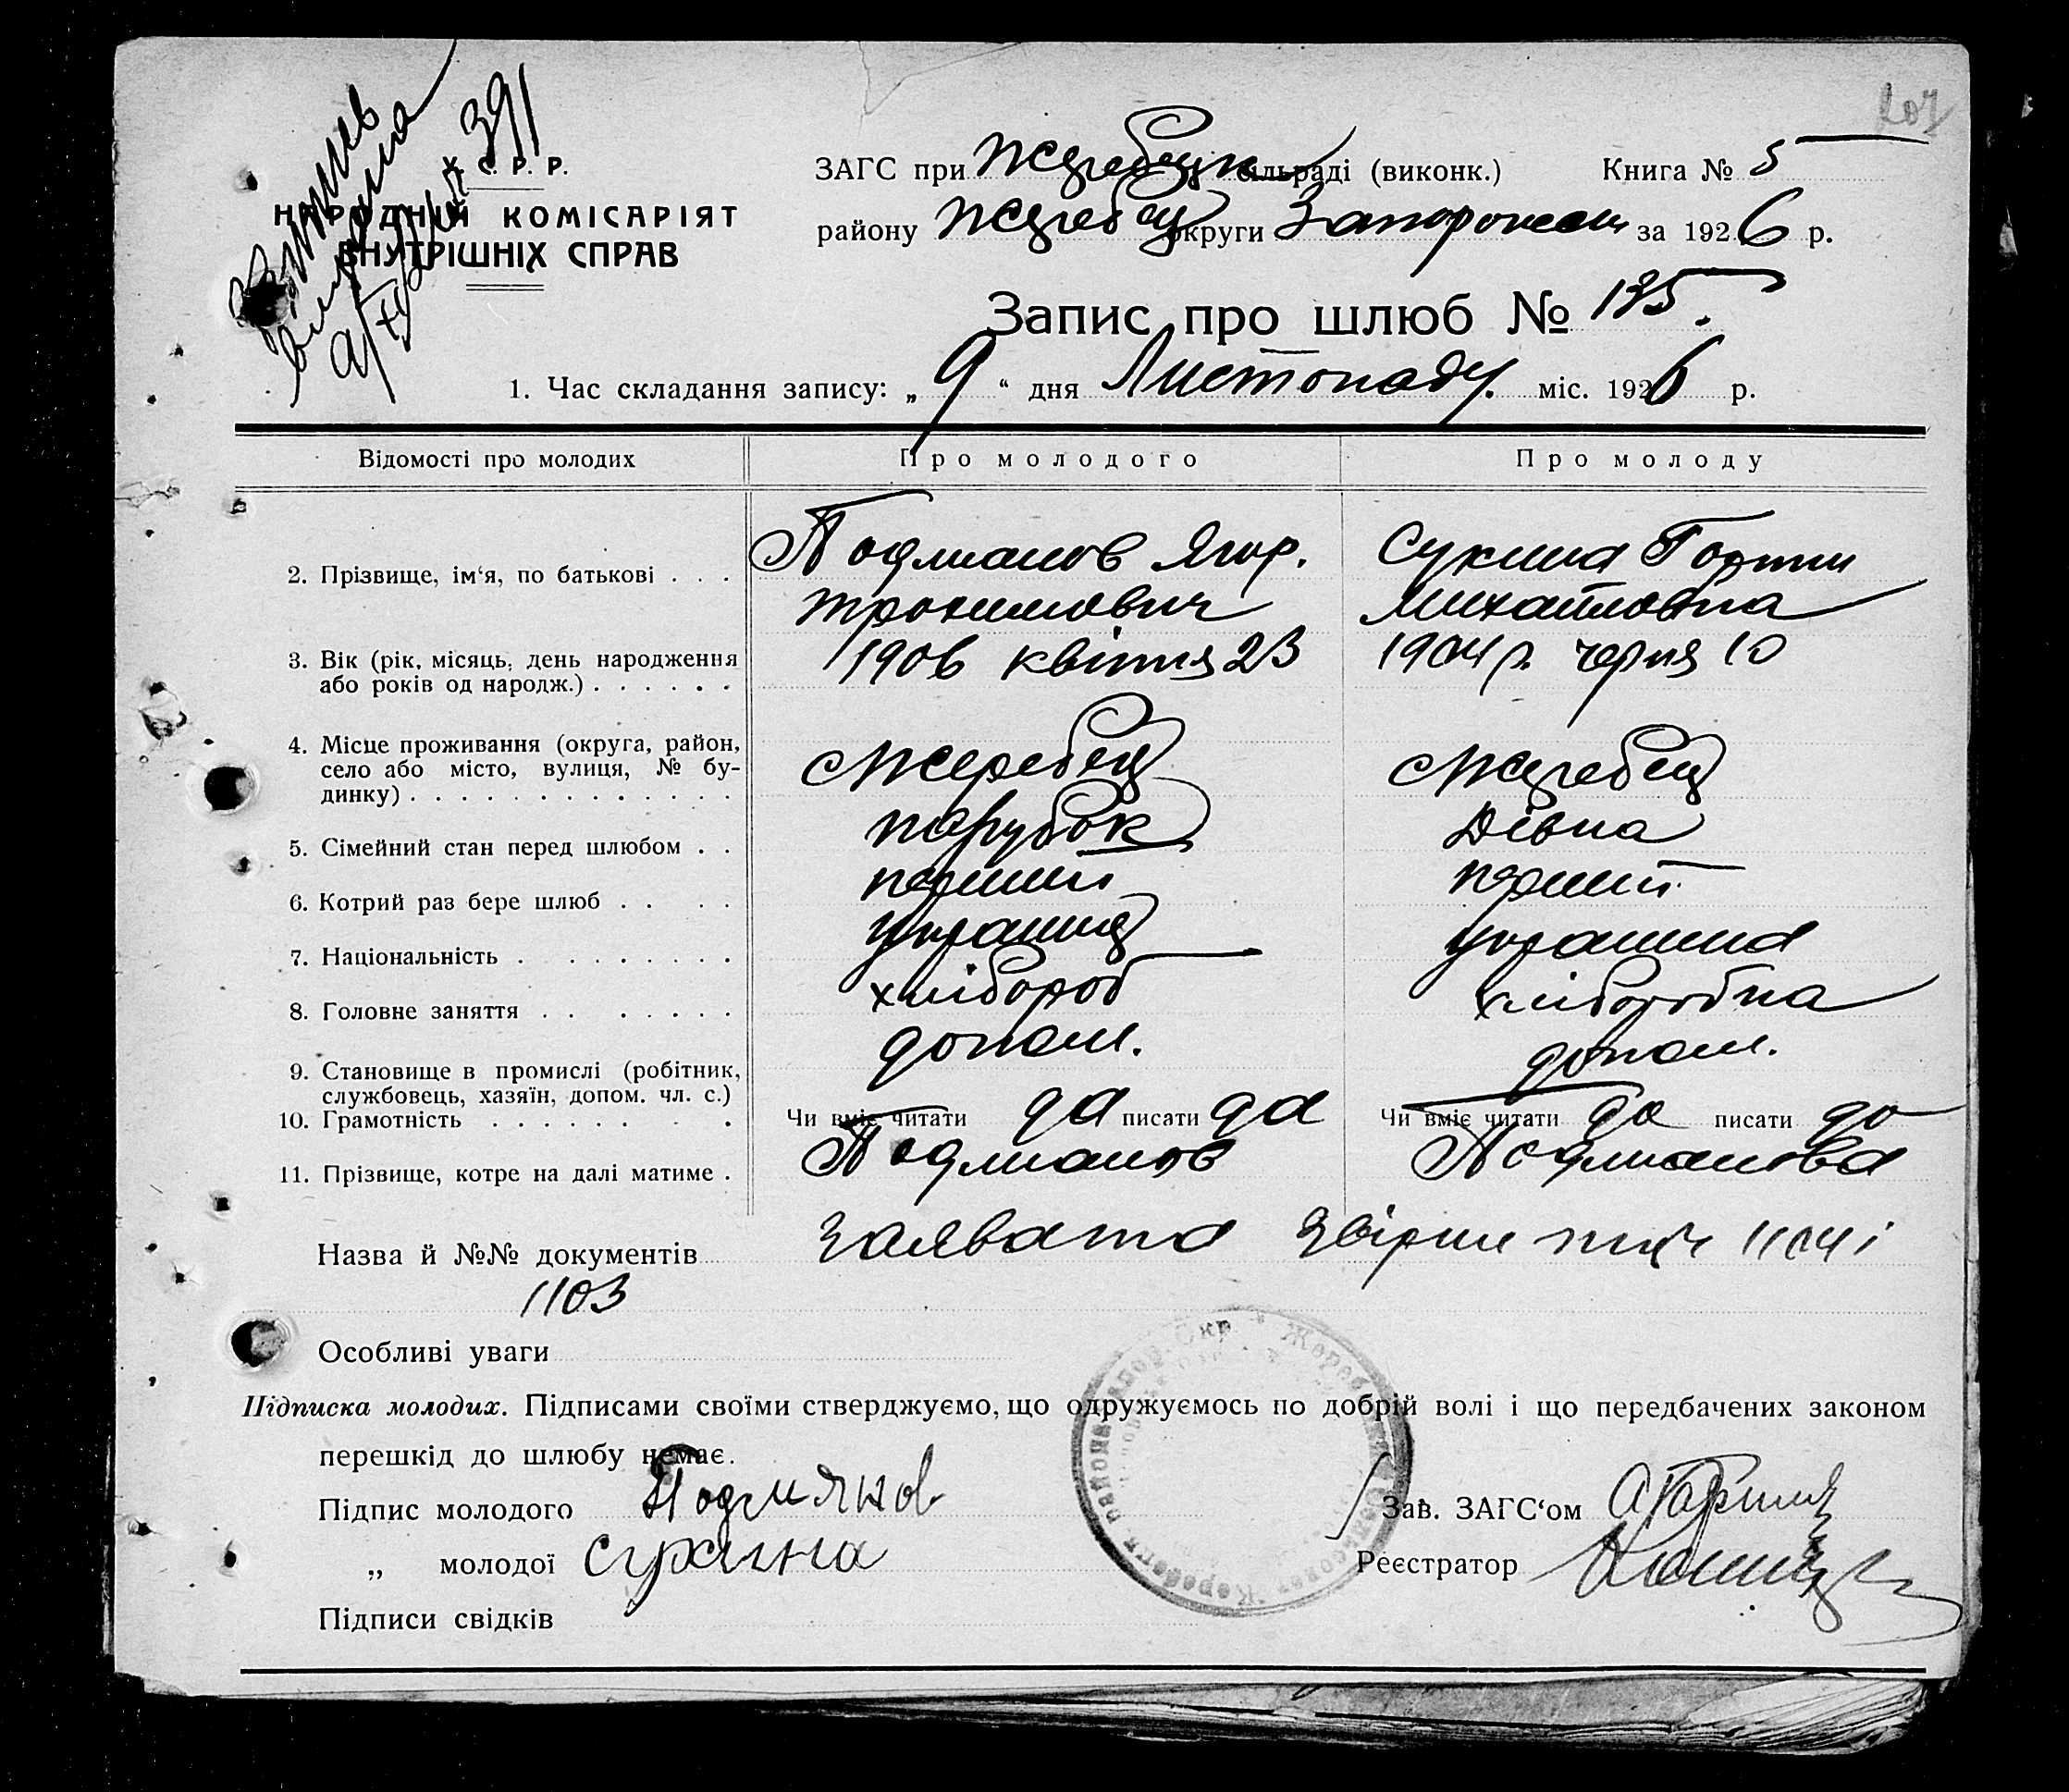 391
У. С. Р. Р.
НАРОДНІЙ КОМІСАРІЯТ
ВНУТРІШНІХ СПРАВ
ЗАГС при Жеребецк сільраді (виконк.) Книга № 5
району Жеребец округи Запорожск за 1926 р.
Запис про шлюб № 135.
1. Час складання запису: „ 9 “ дня Листопаду міс. 1926 р.
Відомості про молодих Про молодого Про молоду
2. Прізвище, ім‘я, по батькові . . . Подмианов Ягор. Сукина
Трохимович Михайловна
3. Вік (рік, місяць, день народження або років од народж.) . . . . . . 1906 квітня 23 1904 р. черня 10
4. Місце проживання (округа, район, село або місто, вулиця, № будинку) . . . . . . . . . . . . . с Жеребец с Жеребец
5. Сімейний стан перед шлюбом . . парубок Дівка
6. Котрий раз бере шлюб . . . . перший перший
7. Національність . . . . . . . . украинец украинка
8. Головне заняття . . . . . . . хлібороб хліборобка
9. Становище в промислі (робітник, службовець, хазяїн, допом. чл. с.) допом. допом.
10. Грамотність . . . . . . . . Чи вміє читати да писати да Чи вміє читати да писати да
11. Прізвище, котре на далі матиме . Подмианов Подмианова
Назва й №№ документів заява та 1104 і
1103
Особливі уваги
Підписка молодих. Підписами своїми стверджуємо, що одружуємось по добрій волі і що передбачених законом
перешкід до шлюбу немає.
Підпис молодого Подмянов
Зав. ЗАГС‘ом
„ молодої Сухина
Реєстратор
Підписи свідків